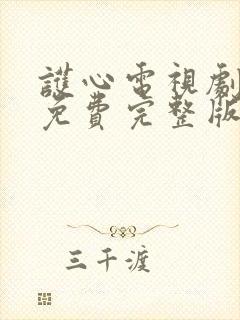 護心電視劇
免費完整版
三千渡